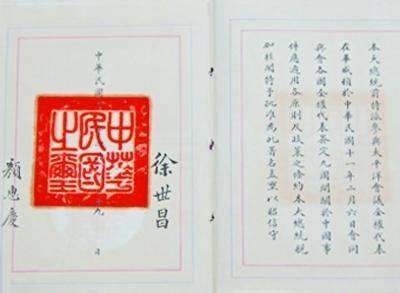 本大總統前特派參與太平洋會議全權代表
在華盛頓於中華民國十一年二月六日會同
與會各國全權代表簽定九國間關於中國事
件應適用各原則及政策之條約本大總統親
加校閱特予批准為此署名蓋璽以昭信守
徐世昌
中華民國 九 日
中華
民國
之璽
顏惠慶